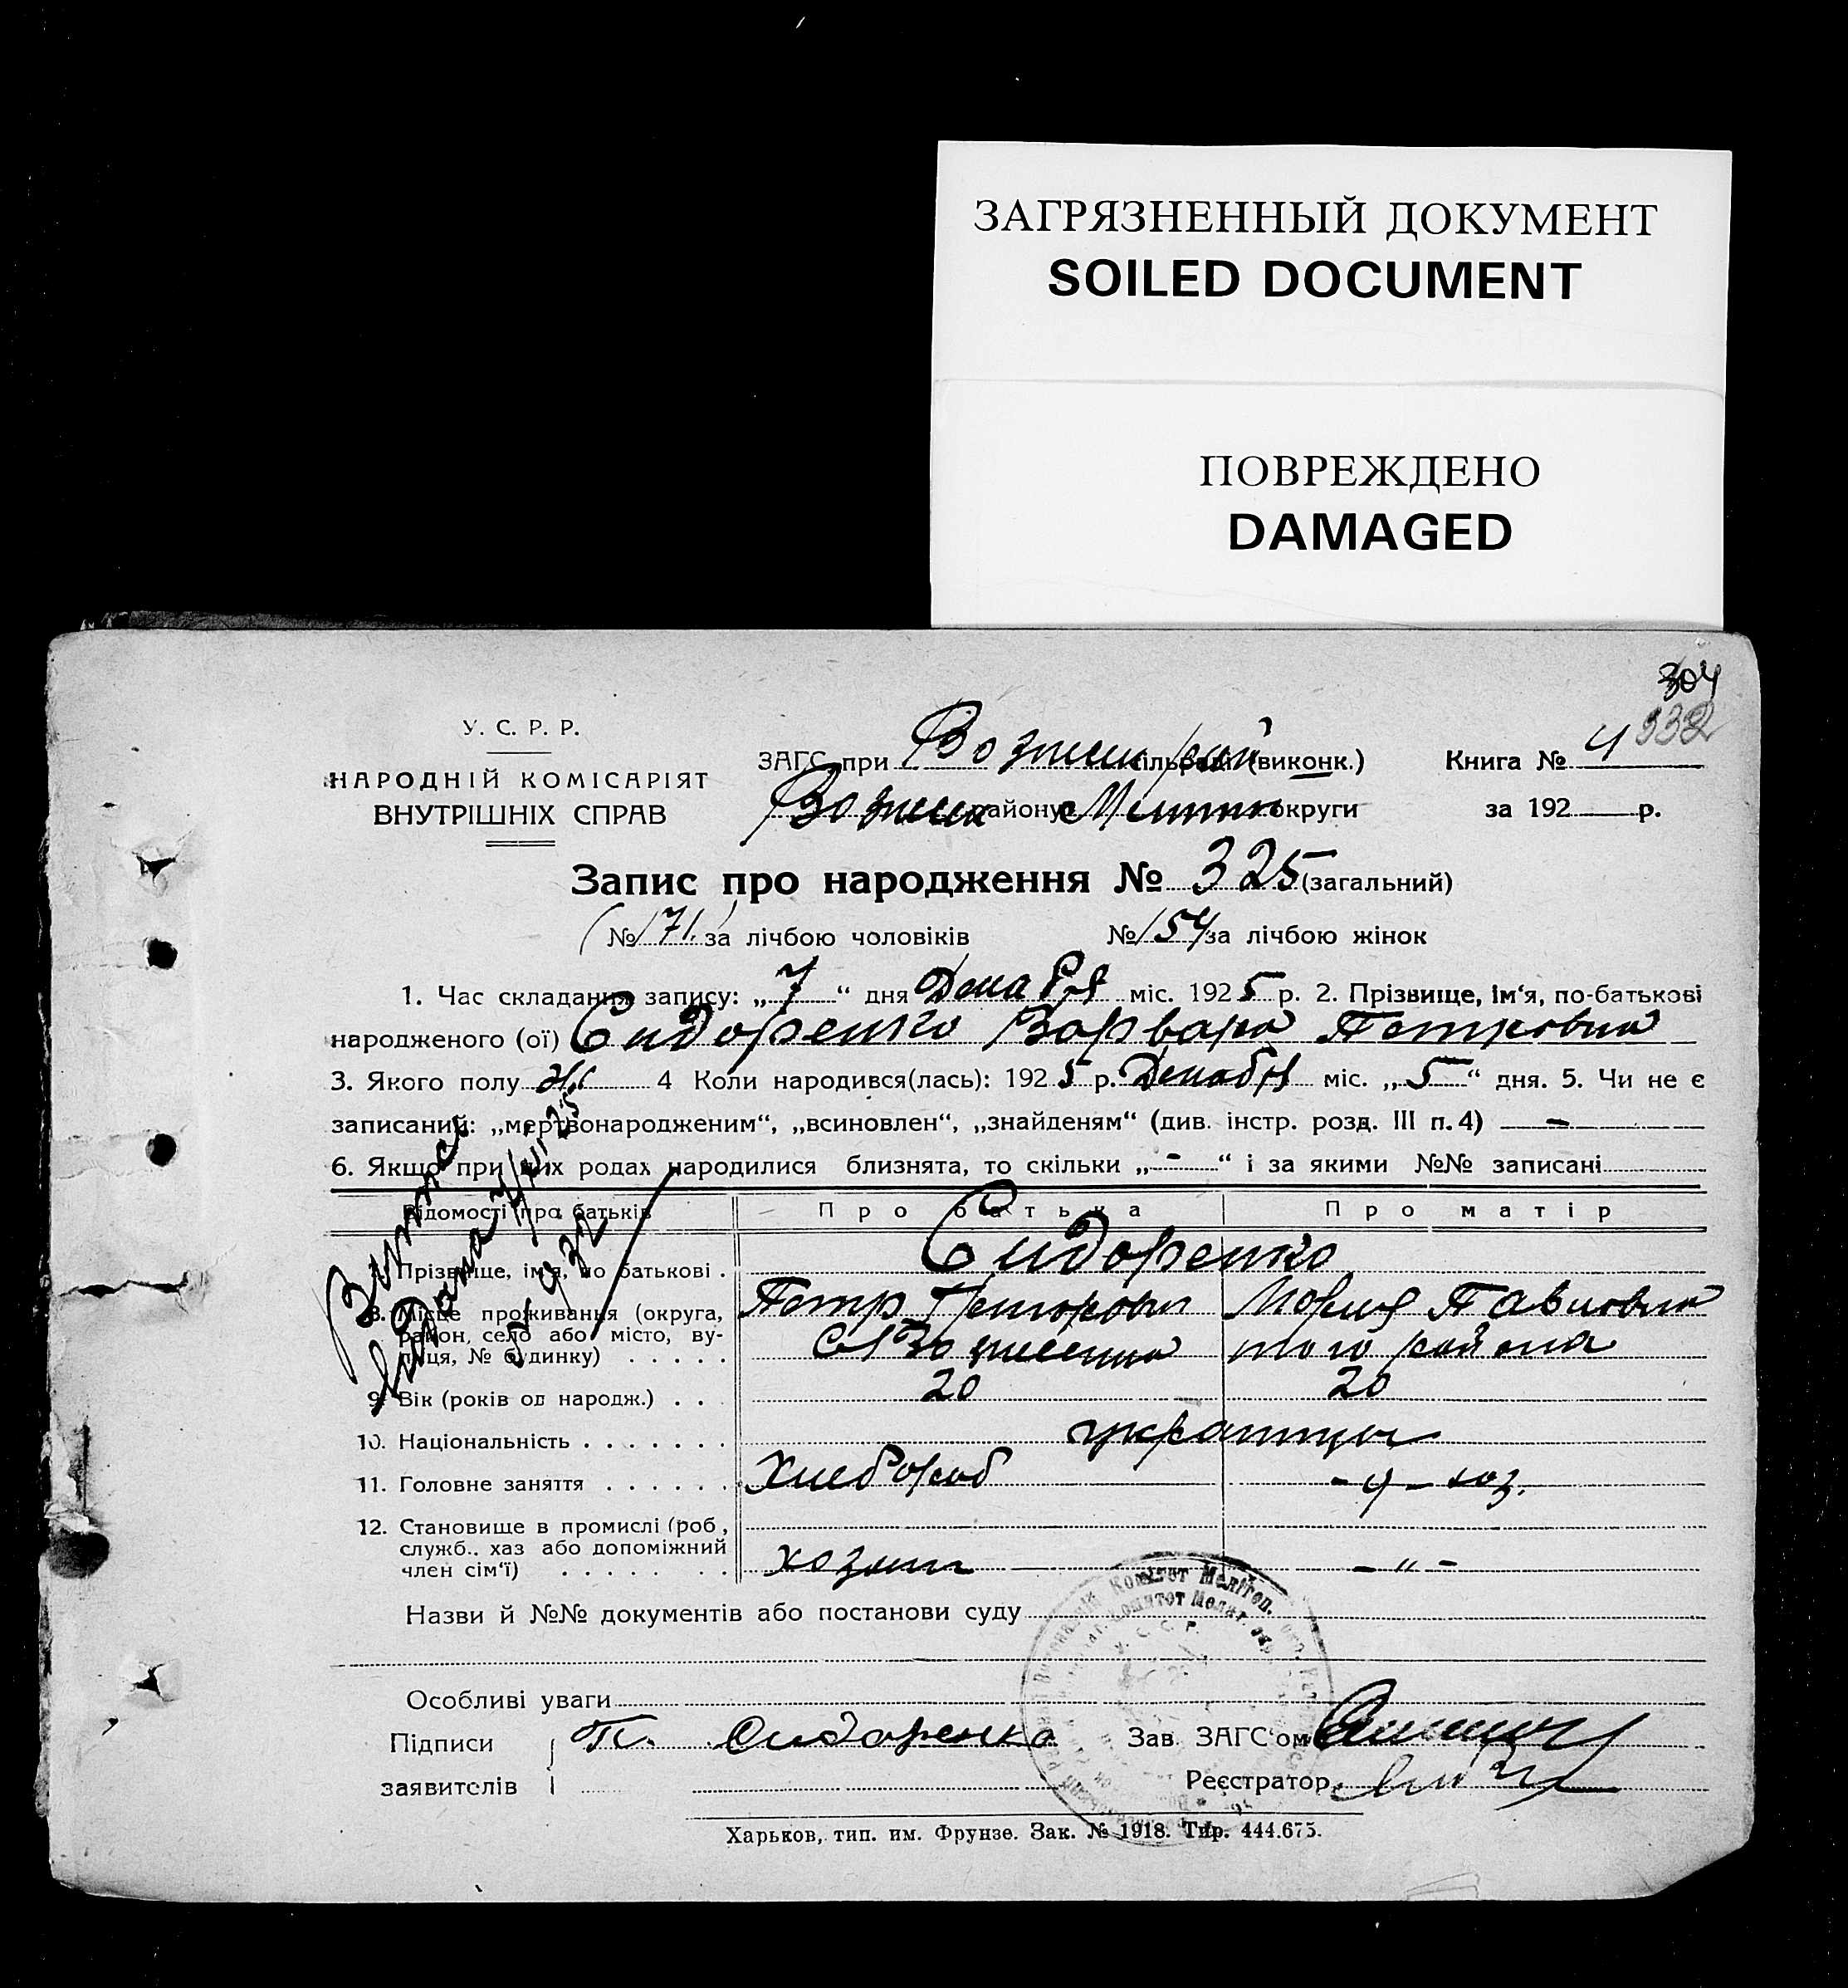 ЗАГРЯЗНЕННЫЙ ДОКУМЕНТ
SOILED DOCUMENT
ПОВРЕЖДЕНО
DAMAGED
304
332
У. С. Р. Р.
НАРОДНІЙ КОМІСАРІЯТ
ВНУТРІШНІХ СПРАВ
ЗАГС при сільраді (виконк.) Книга № 4
району округи за 192 р.
Запис про народження № 325 (загальний)
№ 171 за лічбою чоловіків № 154 за лічбою жінок
1. Час складання запису: „ 7 “ дня Декабря міс. 1925 р. 2. Прізвище, ім‘я, по-батькові
народженого (ої) Сидоренко Варвара Петровна
3. Якого полу ж 4 Коли народився(лась): 1925 р. Декабря міс. „ 5 “ дня. 5. Чи не є
записаний: „мертвонародженим“, „всиновлен“, „знайденям“ (див. інстр. розд. III п. 4) —
6. Якщо при цих родах народилися близнята, то скільки „ - “ і за якими №№ записані
Відомості про батьків Про батька Про матір
Сидоренко
7. Прізвище, ім‘я, по батькові .
Петр Григорович Мория Павловна
8. Місце проживання (округа,
район, село або місто, ву-
лиця, № будинку) . . . . . того района
9. Вік (років од народж.) . . . 20 20
10. Національність . . . . . . . украинцы
11. Головне заняття . . . . . . хлебороб - " - хоз.
12. Становище в промислі (роб,
служб.. хаз або допоміжний
член сім‘ї) . . . . . . . хозяин - " -
Назви й №№ документів або постанови суду
Особливі уваги
Підписи П. Сидоренко Зав. ЗАГС‘ом
заявителів Реєстратор
Харьков, тип. им. Фрунзе. Зак. № 1918. Тир. 444.675.